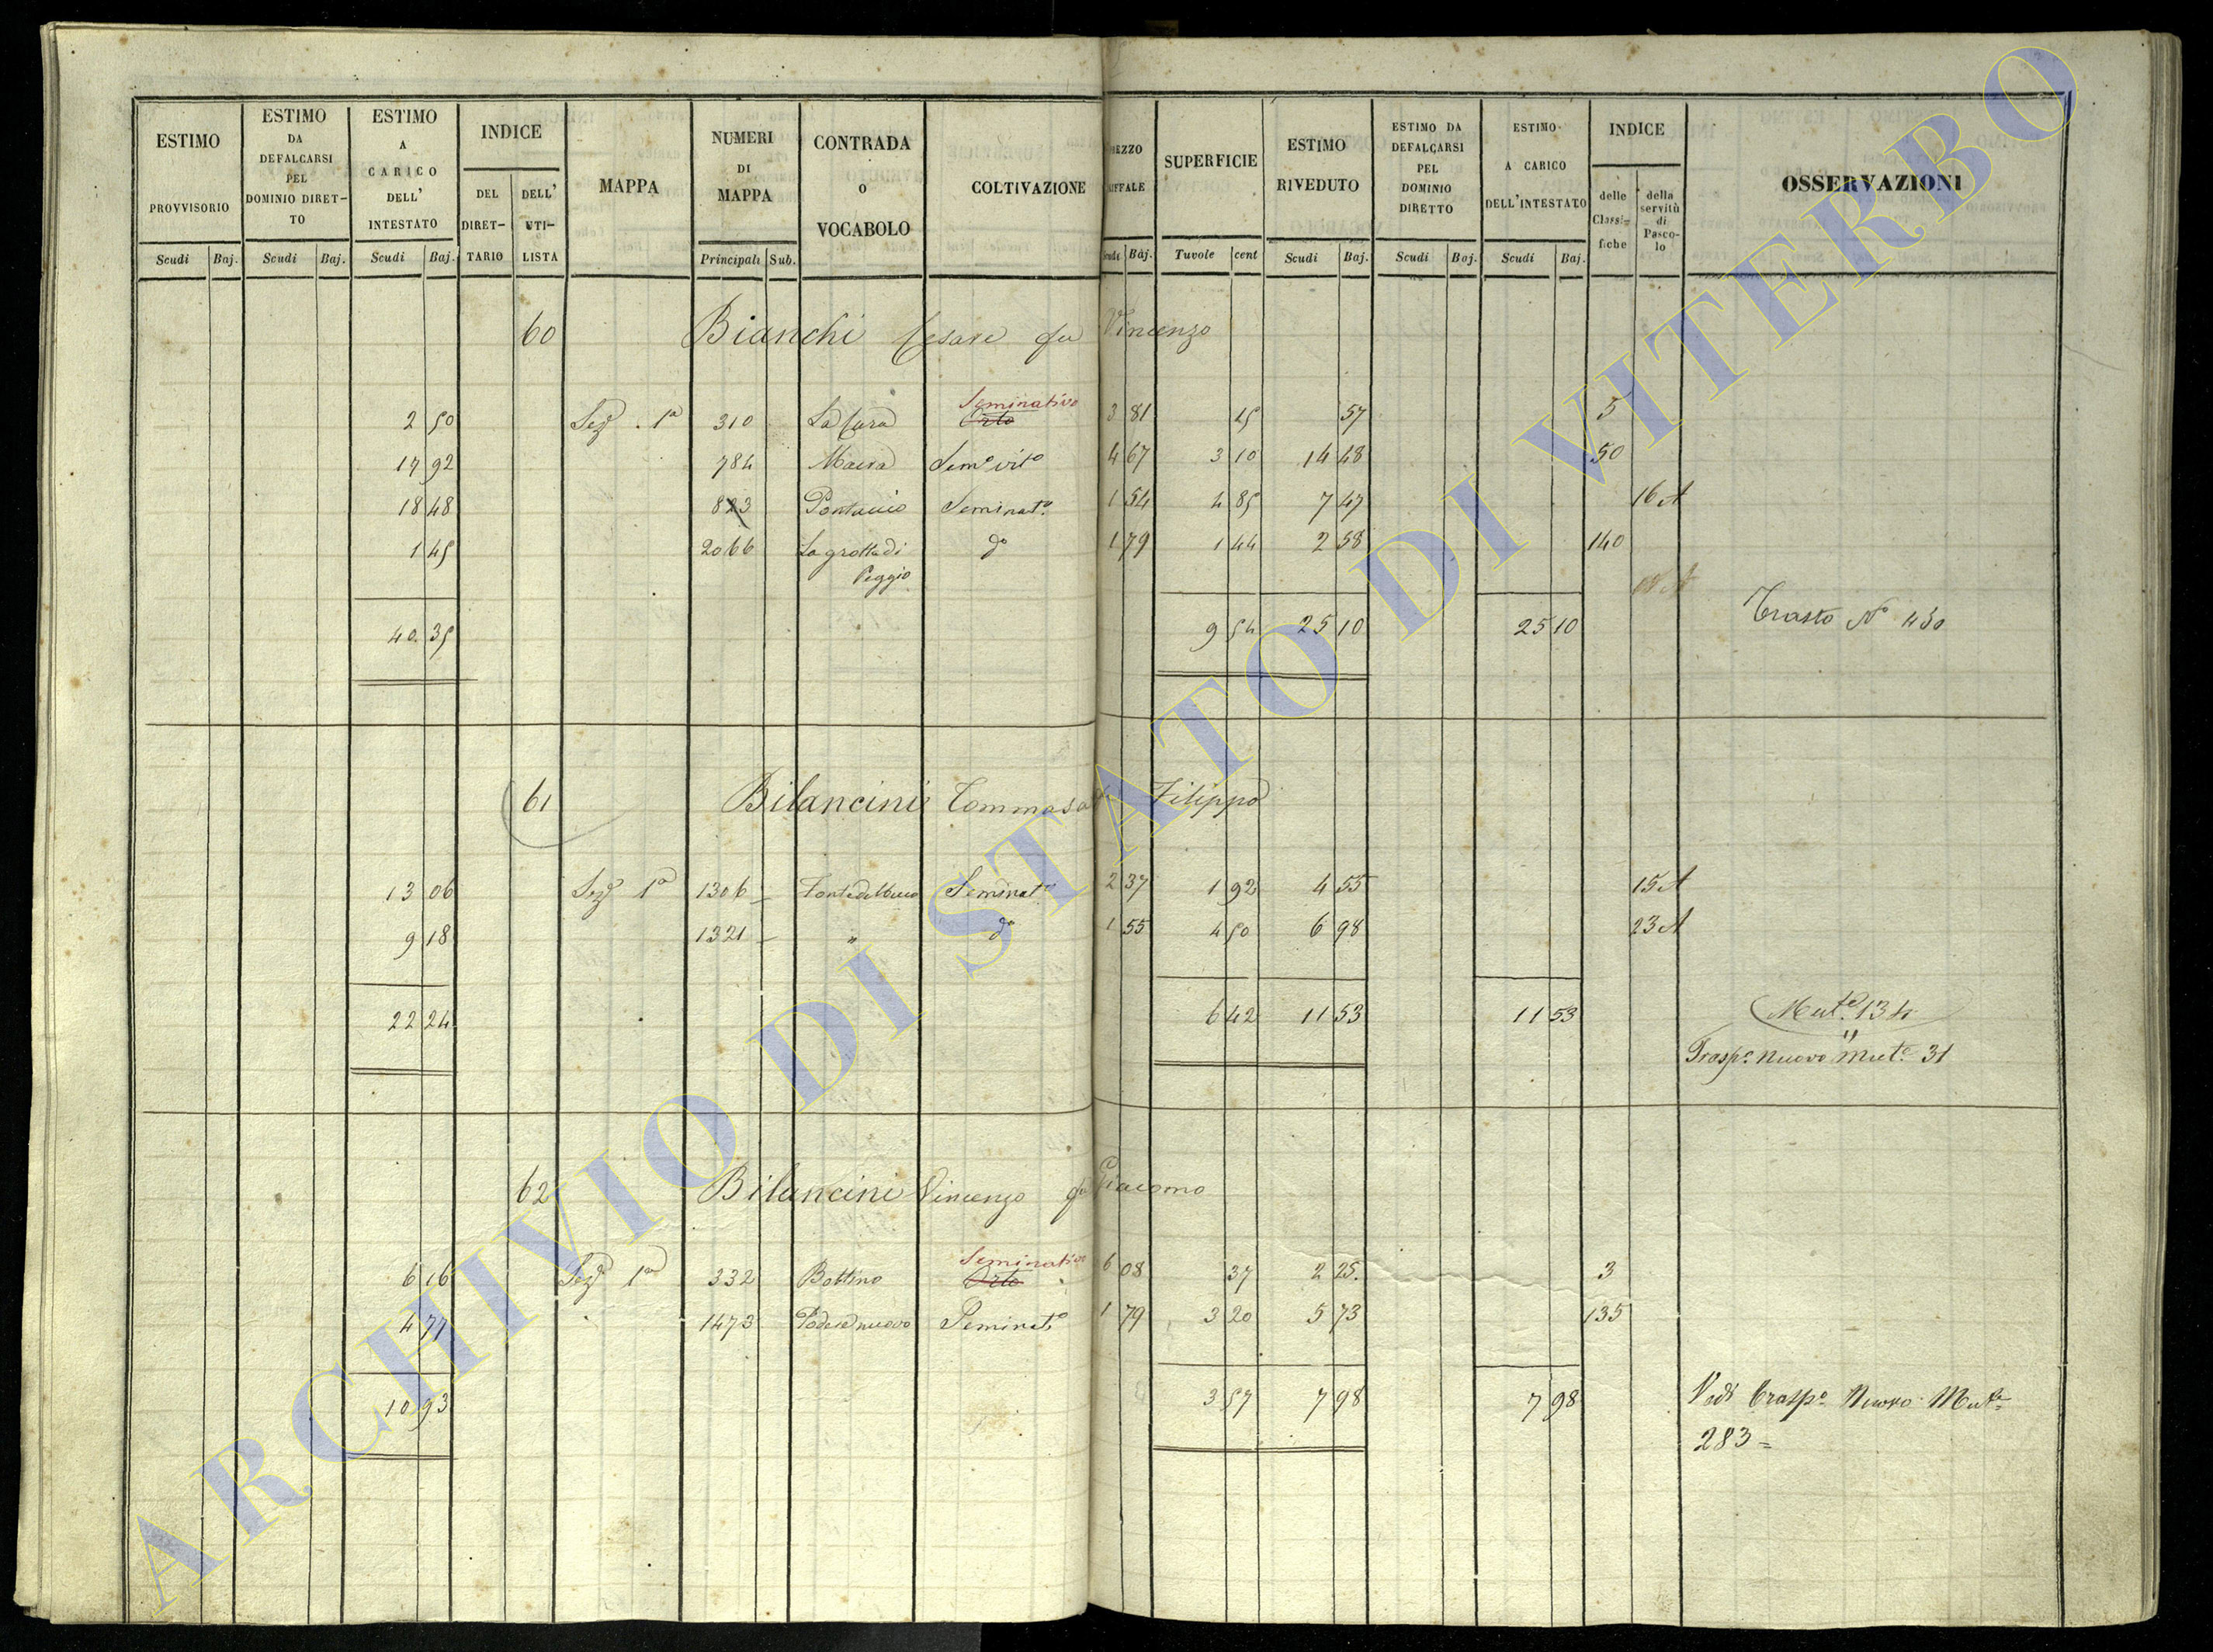 ESTIMO PROVVISORIO Scudi Baj.
ESTIMO DA DEFALCARSI PEL DOMINIO DIRET-TO Scudi Baj.
ESTIMO A CARICO DELL' INTESTATO Scudi Baj.
INDICE DEL DIRET-TARIO DELL' UTI-LISTA
MAPPA
NUMERI DI MAPPA Principali Sub.
CONTRADA o VOCABOLO
COLTIVAZIONE
Baj.
SUPERFICIE Tavole cent
ESTIMO RIVEDUTO Scudi Baj.
ESTIMO DA DEFALCARSI PEL DOMINIO DIRETTO Scudi Baj.
ESTIMO A CARICO DELL'INTESTATO Scudi Baj.
INDICE delle Classi-fiche della servitù di Pasco-lo
OSSERVAZIONI
60 Bianchi Cesare fu Vincenzo
Seminativo
2 50 Sezᵉ 1ª 310 La Cura Orto 3 81 15 57 5
17 92 784 Semᵒ vitᵒ 4 67 3 10 14 48 50
18 48 823 Seminatᵒ 1 54 4 85 7 47 16 A
1 45 2066 La grotta di Peggio dᵒ 1 79 1 44 2 58 140
40. 35 9 54 25 10 25 10 Trasto Nᵒ 430
61 Bilancini Tommaso Filippo
13 06 Sezᵉ 1ª 1306 Seminatᵒ 2 37 1 92 4 55 15 A
9 18 1321 " dᵒ 1 55 4 50 6 98 23 A
22 24 6 42 11 53 11 53 Mutᵉ 134
"
Traspᵒ nuovo Mutᵉ 31
62 Bilancini Vincenzo fu Giacomo
Seminativo
6 16 Sezᵉ 1ª 332 Bottino Orto 6 08 37 2 25. 3
4 77 1473 Podere nuovo Seminatᵒ 1 79 3 20 5 73 135
10 93 3 57 7 98 7 98 Vedi Traspᵒ Nuovo Mutᵉ
283 =
ARCHIVIO DI STATO DI VITERBO